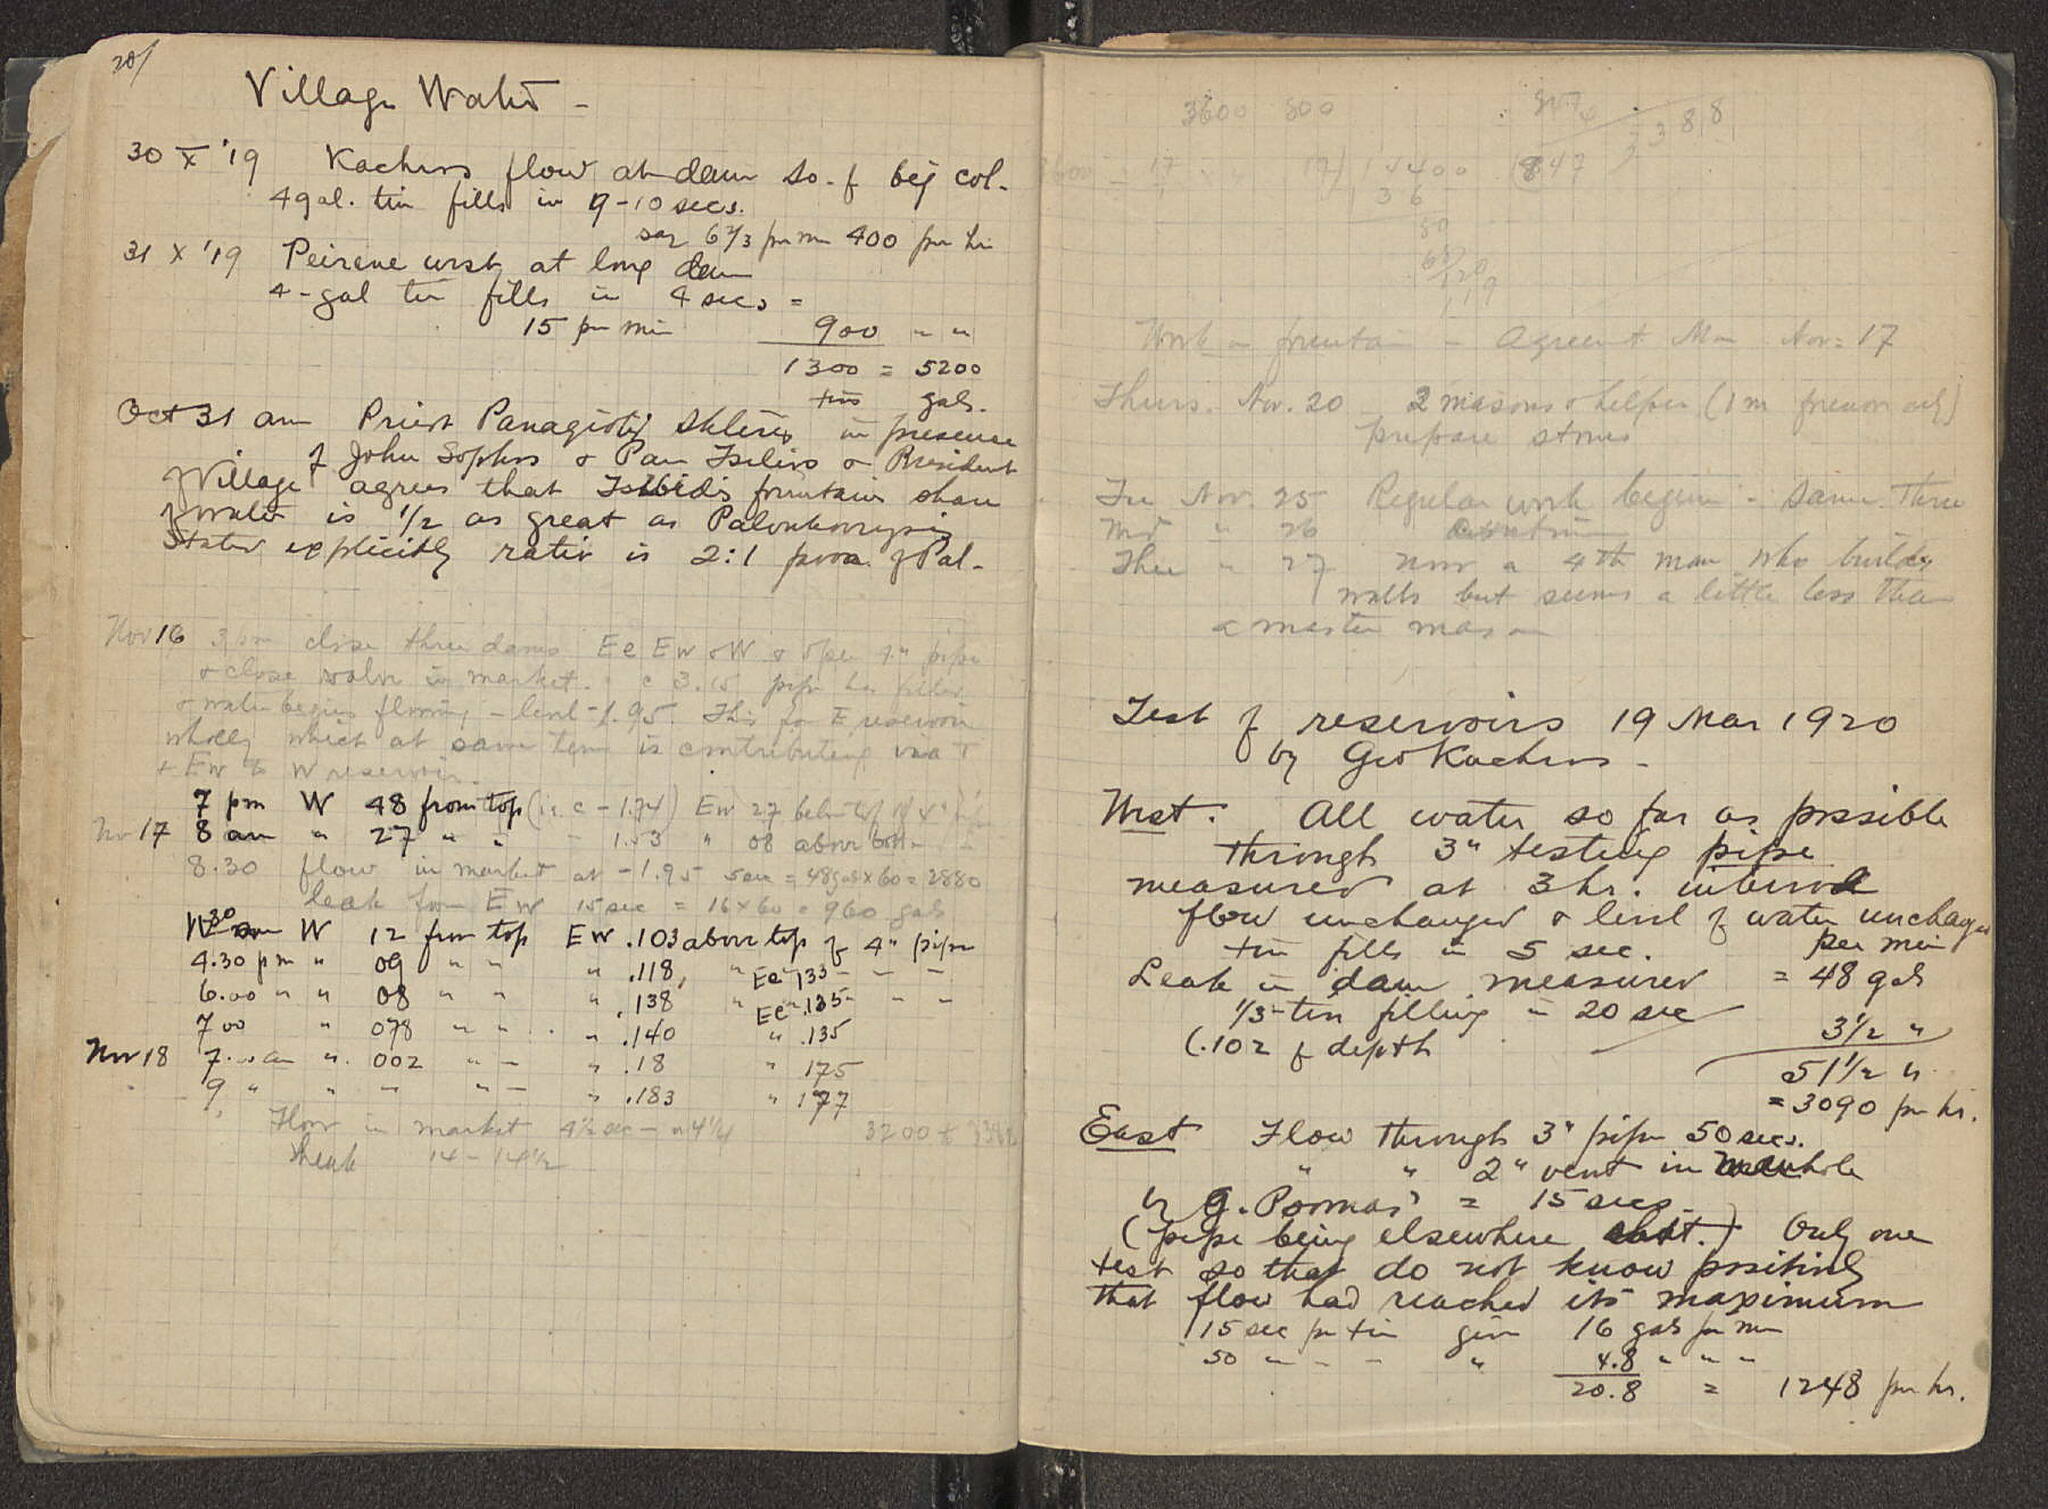 20/
Village Water -
30 X '19 Kachros flow at dam so. of big col.
4 gal. tin fills in 9-10 secs.
say 6 2/3 per min 400 per hr
31 X '19 Peirene west at long dam
4-gal tin fills in 4 secs =
15 per min 900 " "
1300 = 5200
tins gals.
Oct 31 am Priest Panagiotis in presence
of John Sophos & Pan Tselios & President
of Village agrees that fountain share
of water is 1/2 as great as
States explicitly ratio is 2:1 of Pal-
Nov 16 3 pm close three dams Ee Ew & W & open 4" pipe
& close valve in market. c 3.15 pipe has filled
& water begins flowing - level -1.95. This for E reservoir
wholly which at same time is contributing via T
+ Ew to W reservoir.
7 pm W 48 from top (i.e. c - 1.74) Ew 27 below top of 4" pipe
Nov 17 8 am " 27 " " - 1.53 " 08 above bott-
8.30 flow in market at -1.95 5 sec = 48 gals x 60 = 2880
leak from Ew 15 sec = 16 x 60 = 960 gals
30 am W 12 from top Ew .103 above top of 4" pipe
4.30 pm " 09 " " " .118, " Ee 133 - - -
6.00 " " 08 " " " .138 " Ee .135 - -
7 00 " 078 " " " .140 " .135
Nov 18 7.00 am " 002 " - " .18 " 175
9 " " - " - " .183 " 177
Flow in market 4 1/2 sec - 4 1/4 3200
Leak 14 - 14 1/2
3600 800
88
17 17) 14400 (847
136
80
68
120
119
Work on fountain - Agreement Mon Nov. 17
Thurs. Nov. 20 2 masons & helper (1 m only)
prepare stones
Tue Nov. 25 Regular work begins - same three
Wed " 26 continue
Thu " 27 now a 4th man who builds
walls but seems a little less than
a master mason
Test of reservoirs 19 Mar 1920
by Geo Kachros -
West: All water so far as possible
through 3" testing pipe
measured at 3 hr. interval
flow unchanged & level of water unchanged
tin fills in 5 sec. per min
Leak in dam measured = 48 gals
1/3 tin filling in 20 sec
3 1/2 "
(.102 of depth
51 1/2 "
= 3090 per hr.
East Flow through 3" pipe 50 secs.
" " 2" vent in manhole
by G. = 15 secs
(pipe being elsewhere shut.) Only one
test so that do not know positively
that flow had reached its maximum
15 sec per tin give 16 gals per min
50 " - - " 4.8 " " "
20.8 = 1248 per hr.